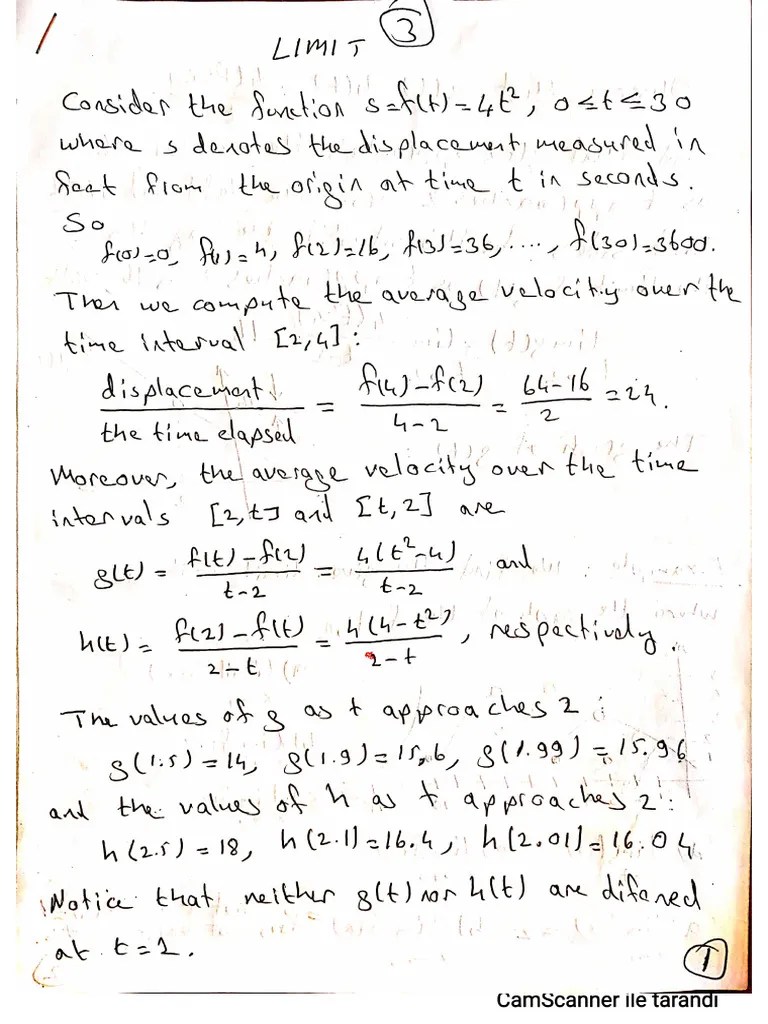 3
LIMIT
Consider the function s=f(t)=4t², 0≤t≤30
where s denotes the displacement measured in
feet from the origin at time t in seconds.
So
f(0)=0, f(1)=4, f(2)=16, f(3)=36, ...., f(30)=3600.
Then we compute the average velocity over the
time interval [2,4]:
displacement / the time elapsed = f(4)-f(2) / 4-2 = 64-16 / 2 = 24.
Moreover, the average velocity over the time
intervals [2,t] and [t,2] are
g(t) = f(t)-f(2) / t-2 = 4(t²-4) / t-2 and
h(t) = f(2)-f(t) / 2-t = 4(4-t²) / 2-t, respectively.
The values of g as t approaches 2:
g(1.5)=14, g(1.9)=15,6, g(1.99)=15.96
and the values of h as t approaches 2:
h(2.5)=18, h(2.1)=16.4, h(2.01)=16.04
Notice that neither g(t) nor h(t) are difened
at t=2.
1
CamScanner ile tarandı